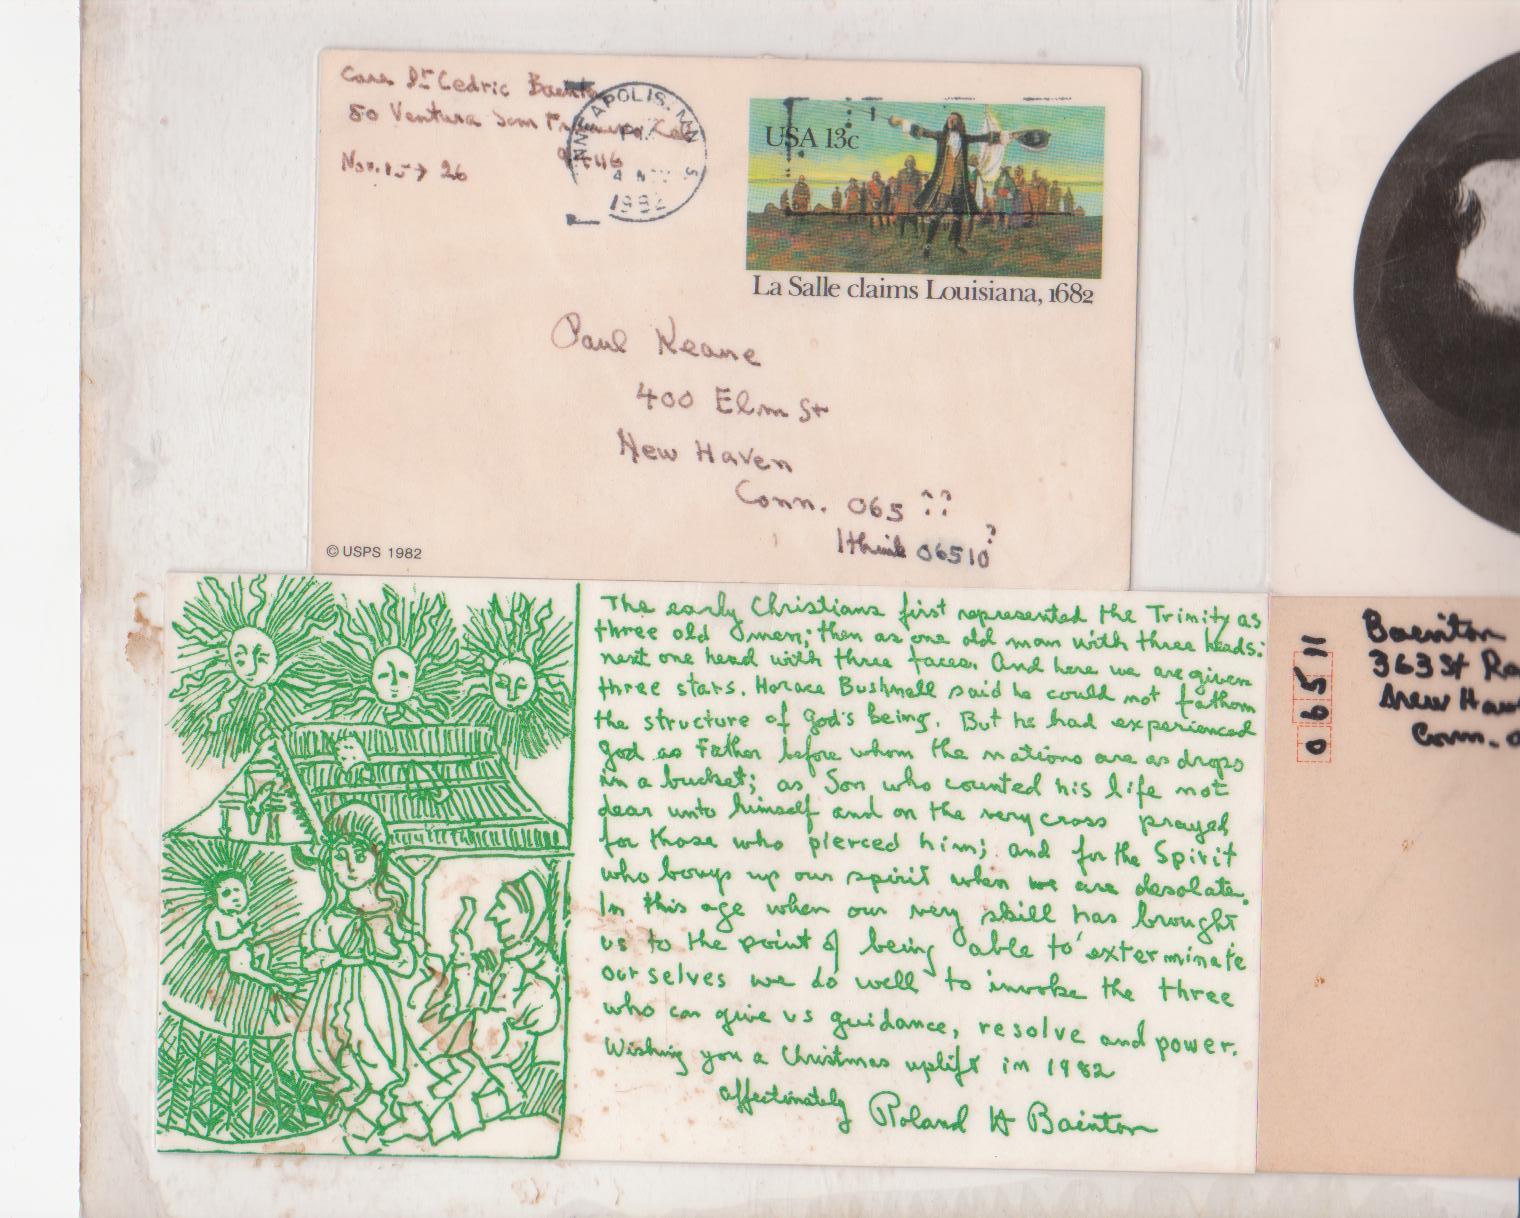 Care Dr Cedric Bainton
80 Ventura San Francisco Cal
Nov. 15 → 26
NNEAPOLIS, MN
1982
USA 13c
La Salle claims Louisiana, 1682
Paul Keane
400 Elm St
New Haven
Conn. 065 ??
I think 06510 ?
© USPS 1982
The early Christians first represented the Trinity as
three old men; then as one old man with three heads:
next one head with three faces. And here we are given
three stars. Horace Bushnell said he could not fathom
the structure of God's being. But he had experienced
God as Father before whom the nations are as drops
in a bucket; as Son who counted his life not
dear unto himself and on the very cross prayed
for those who pierced him; and for the Spirit
who bouys up our spirit when we are desolate.
In this age when our very skill has brought
us to the point of being able to exterminate
our selves we do well to invoke the three
who can give us guidance, resolve and power.
Wishing you a Christmas uplift in 1982
affectionately Roland H Bainton
06511
Bainton
363 St
New
Conn.